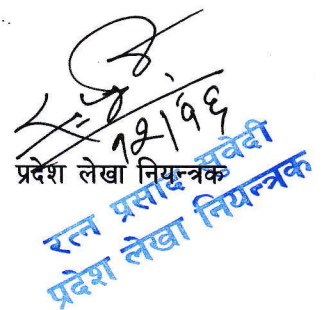 १२।१६
प्रदेश लेखा नियन्त्रक
रत्न प्रसाद सुवेदी
प्रदेश लेखा नियन्त्रक